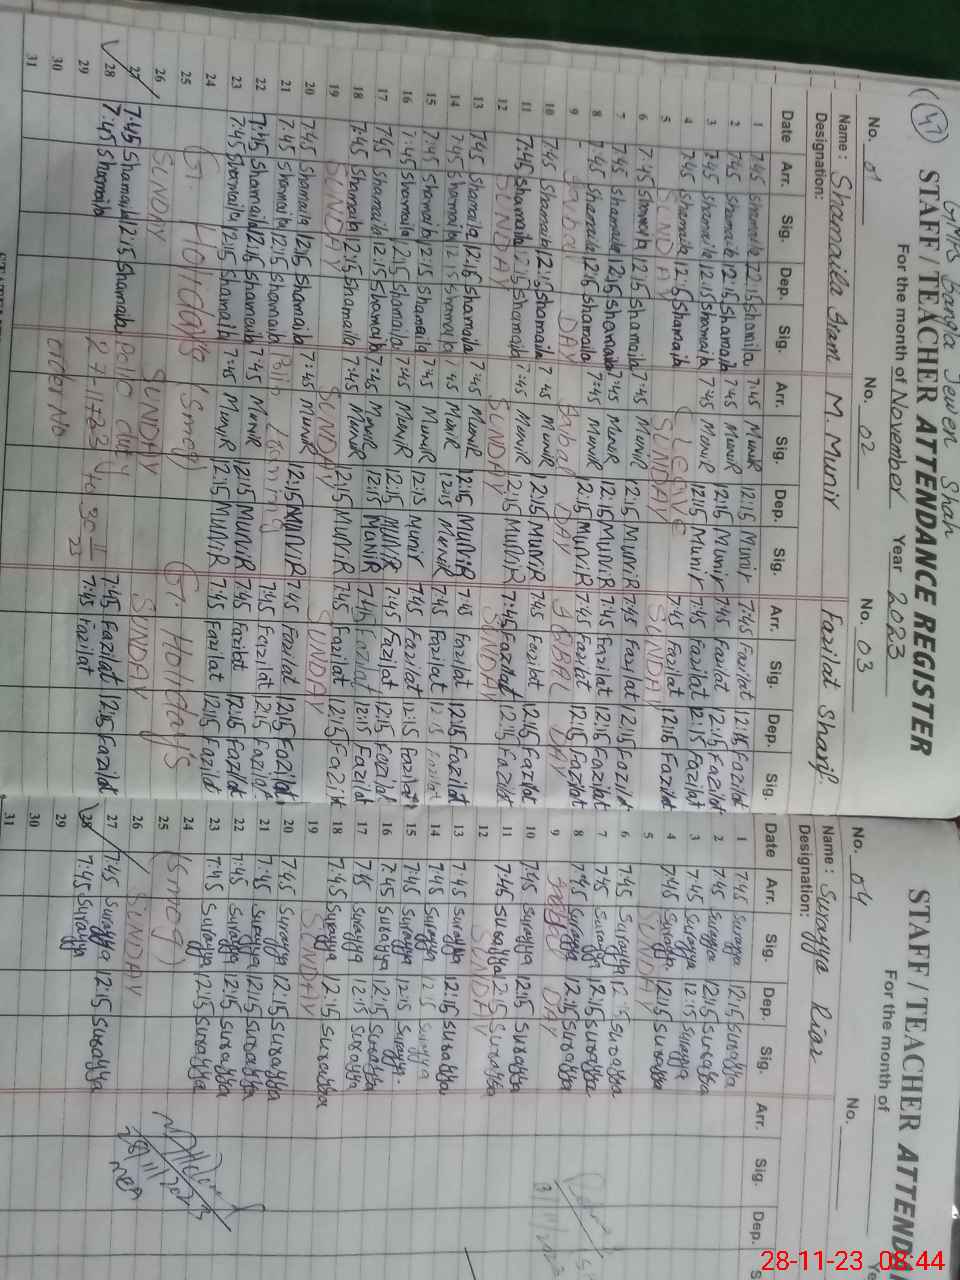 47
GMPS Bangla Jewen Shah
STAFF / TEACHER ATTENDANCE REGISTER
For the month of November Year 2023
No. 01 No. 02 No. 03
Name : Shamaila Gram M. Munir Fazilat Sharif
Designation:
Date Arr. Sig. Dep. Sig. Arr. Sig. Dep. Sig. Arr. Sig. Dep. Sig.
1 7:45 Shamaila 12:15 Shamaila 7:45 Munir 12:15 Munir 7:45 Fazilat 12:15 Fazilat
2 7:45 Shamaila 12:15 Shamaila 7:45 MuniR 12:15 MuniR 7:45 Fazilat 12:15 Fazilat
3 7:45 Shamaila 12:15 Shamaila 7:45 MuniR 12:15 MuniR 7:45 Fazilat 12:15 Fazilat
4 7:45 Shamaila 12:15 Shamaila 12:15 Munir 7:45 Fazilat 12:15 Fazilat
5 SUNDAY SUNDAY SUNDAY
6 7:45 Shamaila 12:15 Shamaila 7:45 MuniR 12:15 MuNiR 7:45 Fazilat 12:15 Fazilat
7 7:45 Shamaila 12:15 Shamaila 7:45 MuniR 12:15 MuNiR 7:45 Fazilat 12:15 Fazilat
8 7:45 Shamaila 12:15 Shamaila 7:45 MuniR 12:15 MuNiR 7:45 Fazilat 12:15 Fazilat
9 DAY DAY IQBAL DAY
10 7:45 Shamaila 12:15 Shamaila 7:45 MuniR 12:15 MuNiR 7:45 Fazilat 12:15 Fazilat
11 7:45 Shamaila 12:15 Shamaila 7:45 MuniR 12:15 MuNiR 7:45 Fazilat 12:15 Fazilat
12 SUNDAY SUNDAY SUNDAY
13 7:45 Shamaila 12:15 Shamaila 7:45 MuniR 12:15 MuNiR 7:45 Fazilat 12:15 Fazilat
14 7:45 Shamaila 12:15 Shamaila 7:45 MuniR 12:15 MuNiR 7:45 Fazilat 12:15 Fazilat
15 7:45 Shamaila 12:15 Shamaila 7:45 MuniR 12:15 Munir 7:45 Fazilat 12:15 Fazilat
16 7:45 Shamaila 12:15 Shamaila 7:45 MuniR 12:15 MuNiR 7:45 Fazilat 12:15 Fazilat
17 7:45 Shamaila 12:15 Shamaila 7:45 MuniR 12:15 MuNiR 7:45 Fazilat 12:15 Fazilat
18 7:45 Shamaila 12:15 Shamaila 7:45 MuniR 12:15 MuNiR 7:45 Fazilat 12:15 Fazilat
19 SUNDAY SUNDAY SUNDAY
20 7:45 Shamaila 12:15 Shamaila 7:45 MuniR 12:15 MuNiR 7:45 Fazilat 12:15 Fazilat
21 7:45 Shamaila 12:15 Shamaila 7:45 Fazilat 12:15 Fazilat
22 7:45 Shamaila 12:15 Shamaila 7:45 MuniR 12:15 MuNiR 7:45 Fazilat 12:15 Fazilat
23 7:45 Shamaila 12:15 Shamaila 7:45 MuniR 12:15 MuNiR 7:45 Fazilat 12:15 Fazilat
24
25 GT. Holiday's (Smog) GT. Holiday's
26 SUNDAY SUNDAY SUNDAY
27 7:45 Shamaila 12:15 Shamaila Polio duty 7:45 Fazilat 12:15 Fazilat
28 7:45 Shamaila 27-11-23 to 30-11-23 7:45 Fazilat
29
30 order No
31
STAFF / TEACHER ATTENDA
For the month of
No. 04 No.
Name : Surayya Riaz
Designation:
Date Arr. Sig. Dep. Sig. Arr. Sig. Dep.
1 7:45 Surayya 12:15 Surayya
2 7:45 Surayya 12:15 Surayya
3 7:45 Surayya 12:15 Surayya
4 7:45 Surayya 12:15 Surayya
5 SUNDAY
6 7:45 Surayya 12:15 Surayya
7 7:45 Surayya 12:15 Surayya
8 7:45 Surayya 12:15 Surayya
9 DAY
10 7:45 Surayya 12:15 Surayya
11 7:45 Surayya 12:15 Surayya
12 SUNDAY
13 7:45 Surayya 12:15 Surayya
14 7:45 Surayya 12:15 Surayya
15 7:45 Surayya 12:15 Surayya
16 7:45 Surayya 12:15 Surayya
17 7:45 Surayya 12:15 Surayya
18 7:45 Surayya 12:15 Surayya
19 SUNDAY
20 7:45 Surayya 12:15 Surayya
21 7:45 Surayya 12:15 Surayya
22 7:45 Surayya 12:15 Surayya
23 7:45 Surayya 12:15 Surayya
24
25 (Smog)
26 SUNDAY
27 7:45 Surayya 12:15 Surayya
28 7:45 Surayya
29
30
31
28/11/2023
MEA
28-11-23 08:44